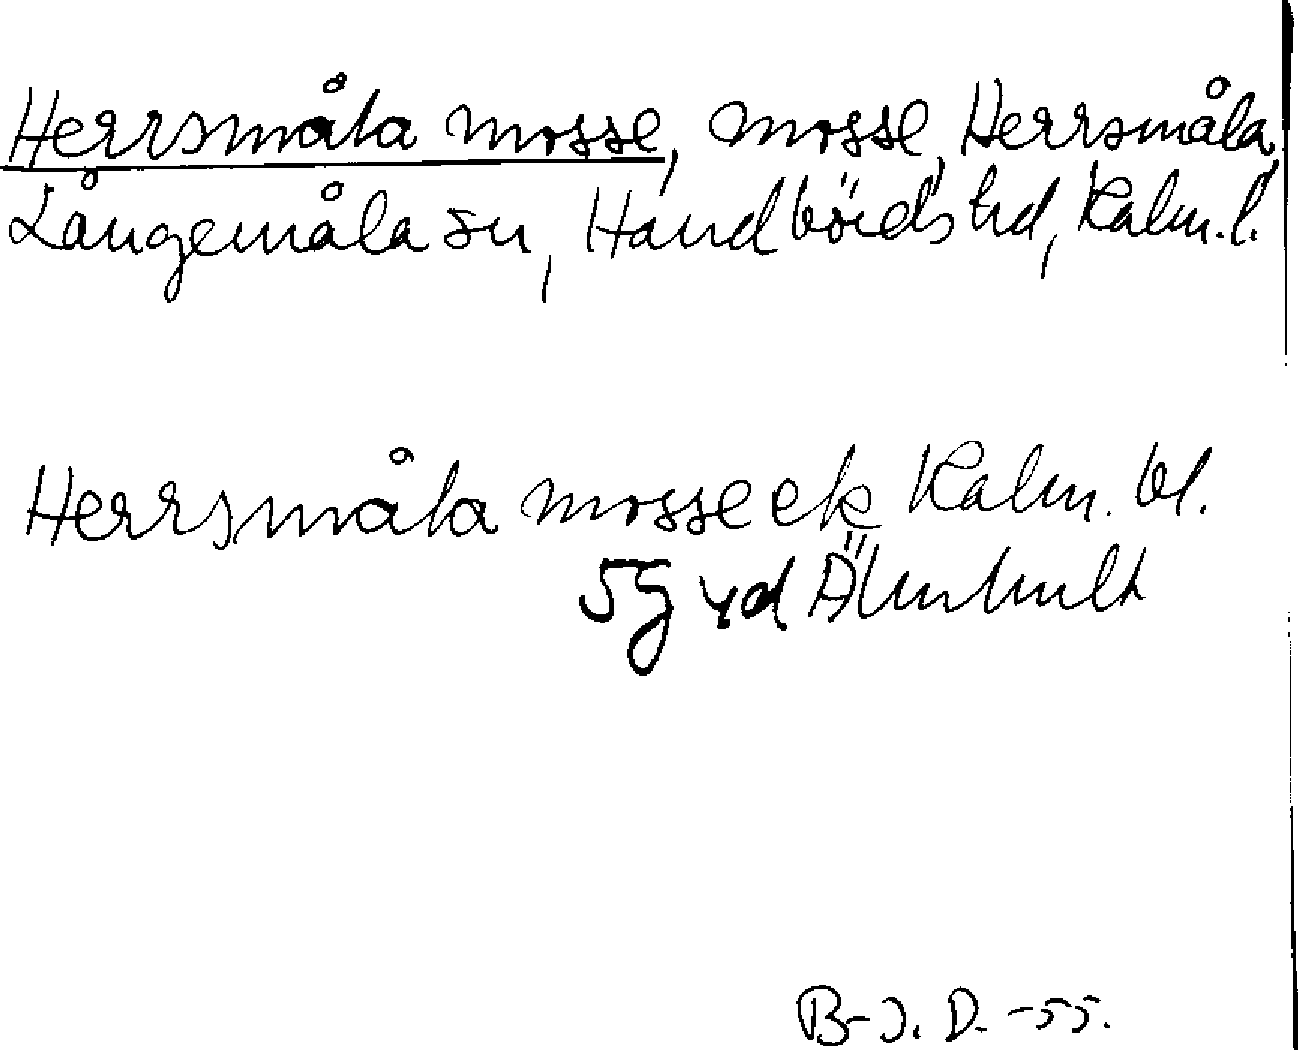 Herrsmåla mosse, mosse, Herrsmåla,
Långemåla sn, Handbörds hd, Kalm. l.
Herrsmåla mosse ek Kalm. bl.
5g vd Älmhult
B-J. D. -55.